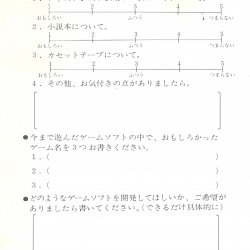 1 2 3 4 5
おもしろい ふつう つまらない
2．小説本について。
1 2 3 4 5
おもしろい ふつう つまらない
3．カセットテープについて。
1 2 3 4 5
おもしろい ふつう つまらない
4．その他、お気付きの点がありましたら。
●今まで遊んだゲームソフトの中で、おもしろかった
ゲーム名を3つお書きください。
1．( )
2．( )
3．( )
●どのようなゲームソフトを開発してほしいか、ご希望が
ありましたら書いてください。(できるだけ具体的に)